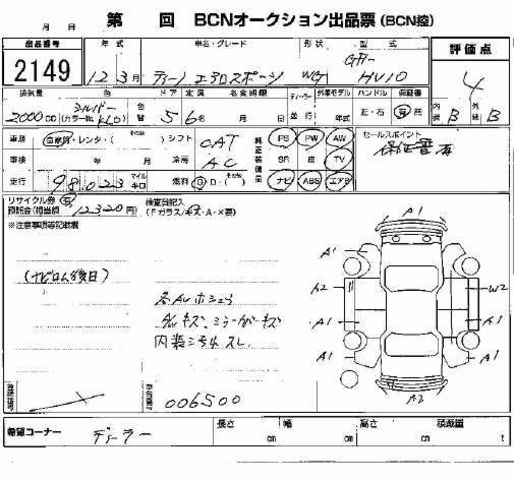 月 日 第 回 BCNオークション出品票(BCN控)
出品番号 年式 車名・グレード 形状 型式 評価点
2149 12 3月 ティーノ エアロスポーツ WG GF- HV10 4
排気量 色 色替 ドア 定員 名変期限 ディーラー 外車モデル ハンドル 保証書 内装 外装
2000cc シルバー (カラーNo. KL0) 5 6名 月 日 正・右 有 B B
車歴 自家用・レンタ・( その他 ) シフト OAT 純正装備品 PS PW AW セールスポイント
車検 年 月 冷房 AC SR 革 TV 保証書有
走行 98023 マイル キロ 燃料 G D・( その他 ) ナビ ABS エアB
リサイクル券 有 預託金(相当額 12320円) 検査員記入 (Fガラス/キズ・A・X要)
※注意事項等記載欄
(ナビロム後日)
内装ヨゴレ、スレ
A1
A1
A2 W2
A1 A1
A1 A1
A2
車台番号 006500
希望コーナー ディーラー 長さ cm 幅 cm 高さ cm 積載量 t